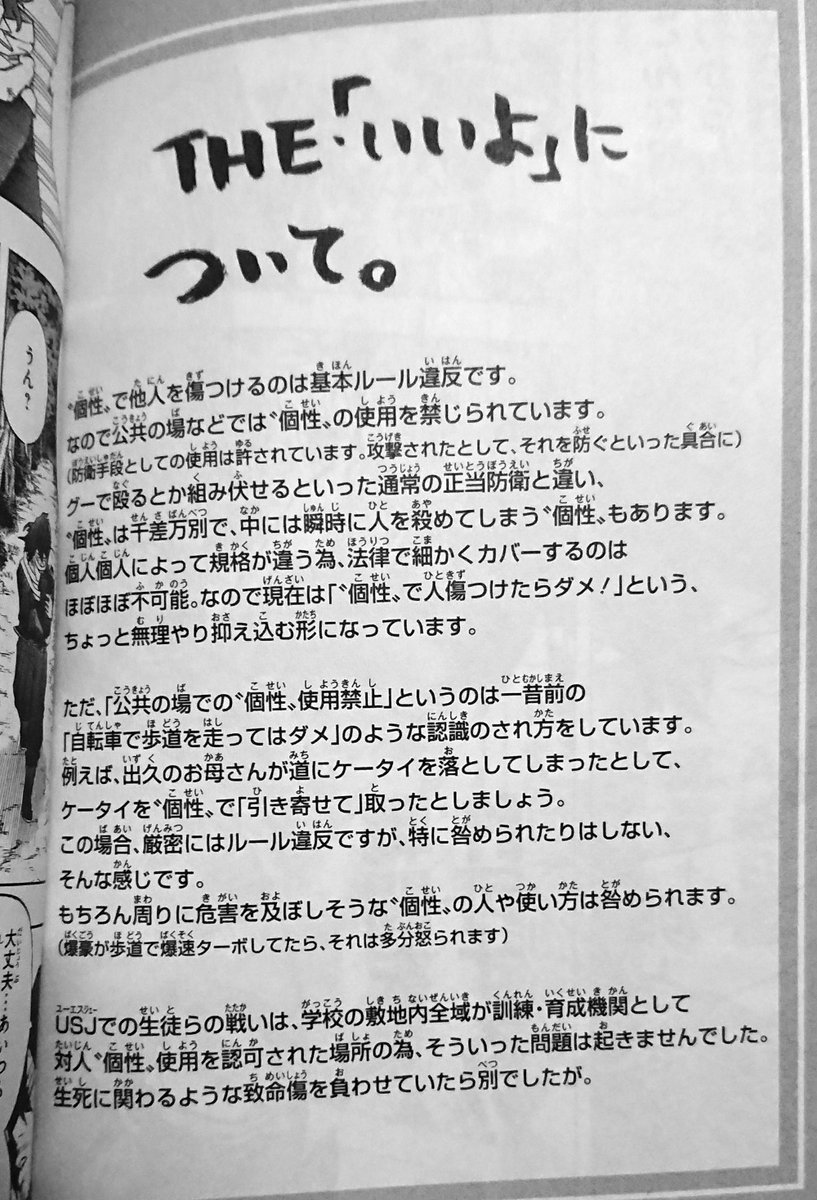 THE・「いいよ」に
ついて。
〝個性〟で他人を傷つけるのは基本ルール違反です。
なので公共の場などでは〝個性〟の使用を禁じられています。
(防衛手段としての使用は許されています。攻撃されたとして、それを防ぐといった具合に)
グーで殴るとか組み伏せるといった通常の正当防衛と違い、
〝個性〟は千差万別で、中には瞬時に人を殺めてしまう〝個性〟もあります。
個人個人によって規格が違う為、法律で細かくカバーするのは
ほぼほぼ不可能。なので現在は「〝個性〟で人傷つけたらダメ!」という、
ちょっと無理やり抑え込む形になっています。
ただ、「公共の場での〝個性〟使用禁止」というのは一昔前の
「自転車で歩道を走ってはダメ」のような認識のされ方をしています。
例えば、出久のお母さんが道にケータイを落としてしまったとして、
ケータイを〝個性〟で「引き寄せて」取ったとしましょう。
この場合、厳密にはルール違反ですが、特に咎められたりはしない、
そんな感じです。
もちろん周りに危害を及ぼしそうな〝個性〟の人や使い方は咎められます。
(爆豪が歩道で爆速ターボしてたら、それは多分怒られます)
USJでの生徒らの戦いは、学校の敷地内全域が訓練・育成機関として
対人〝個性〟使用を認可された場所の為、そういった問題は起きませんでした。
生死に関わるような致命傷を負わせていたら別でしたが。
うん?
大丈夫…